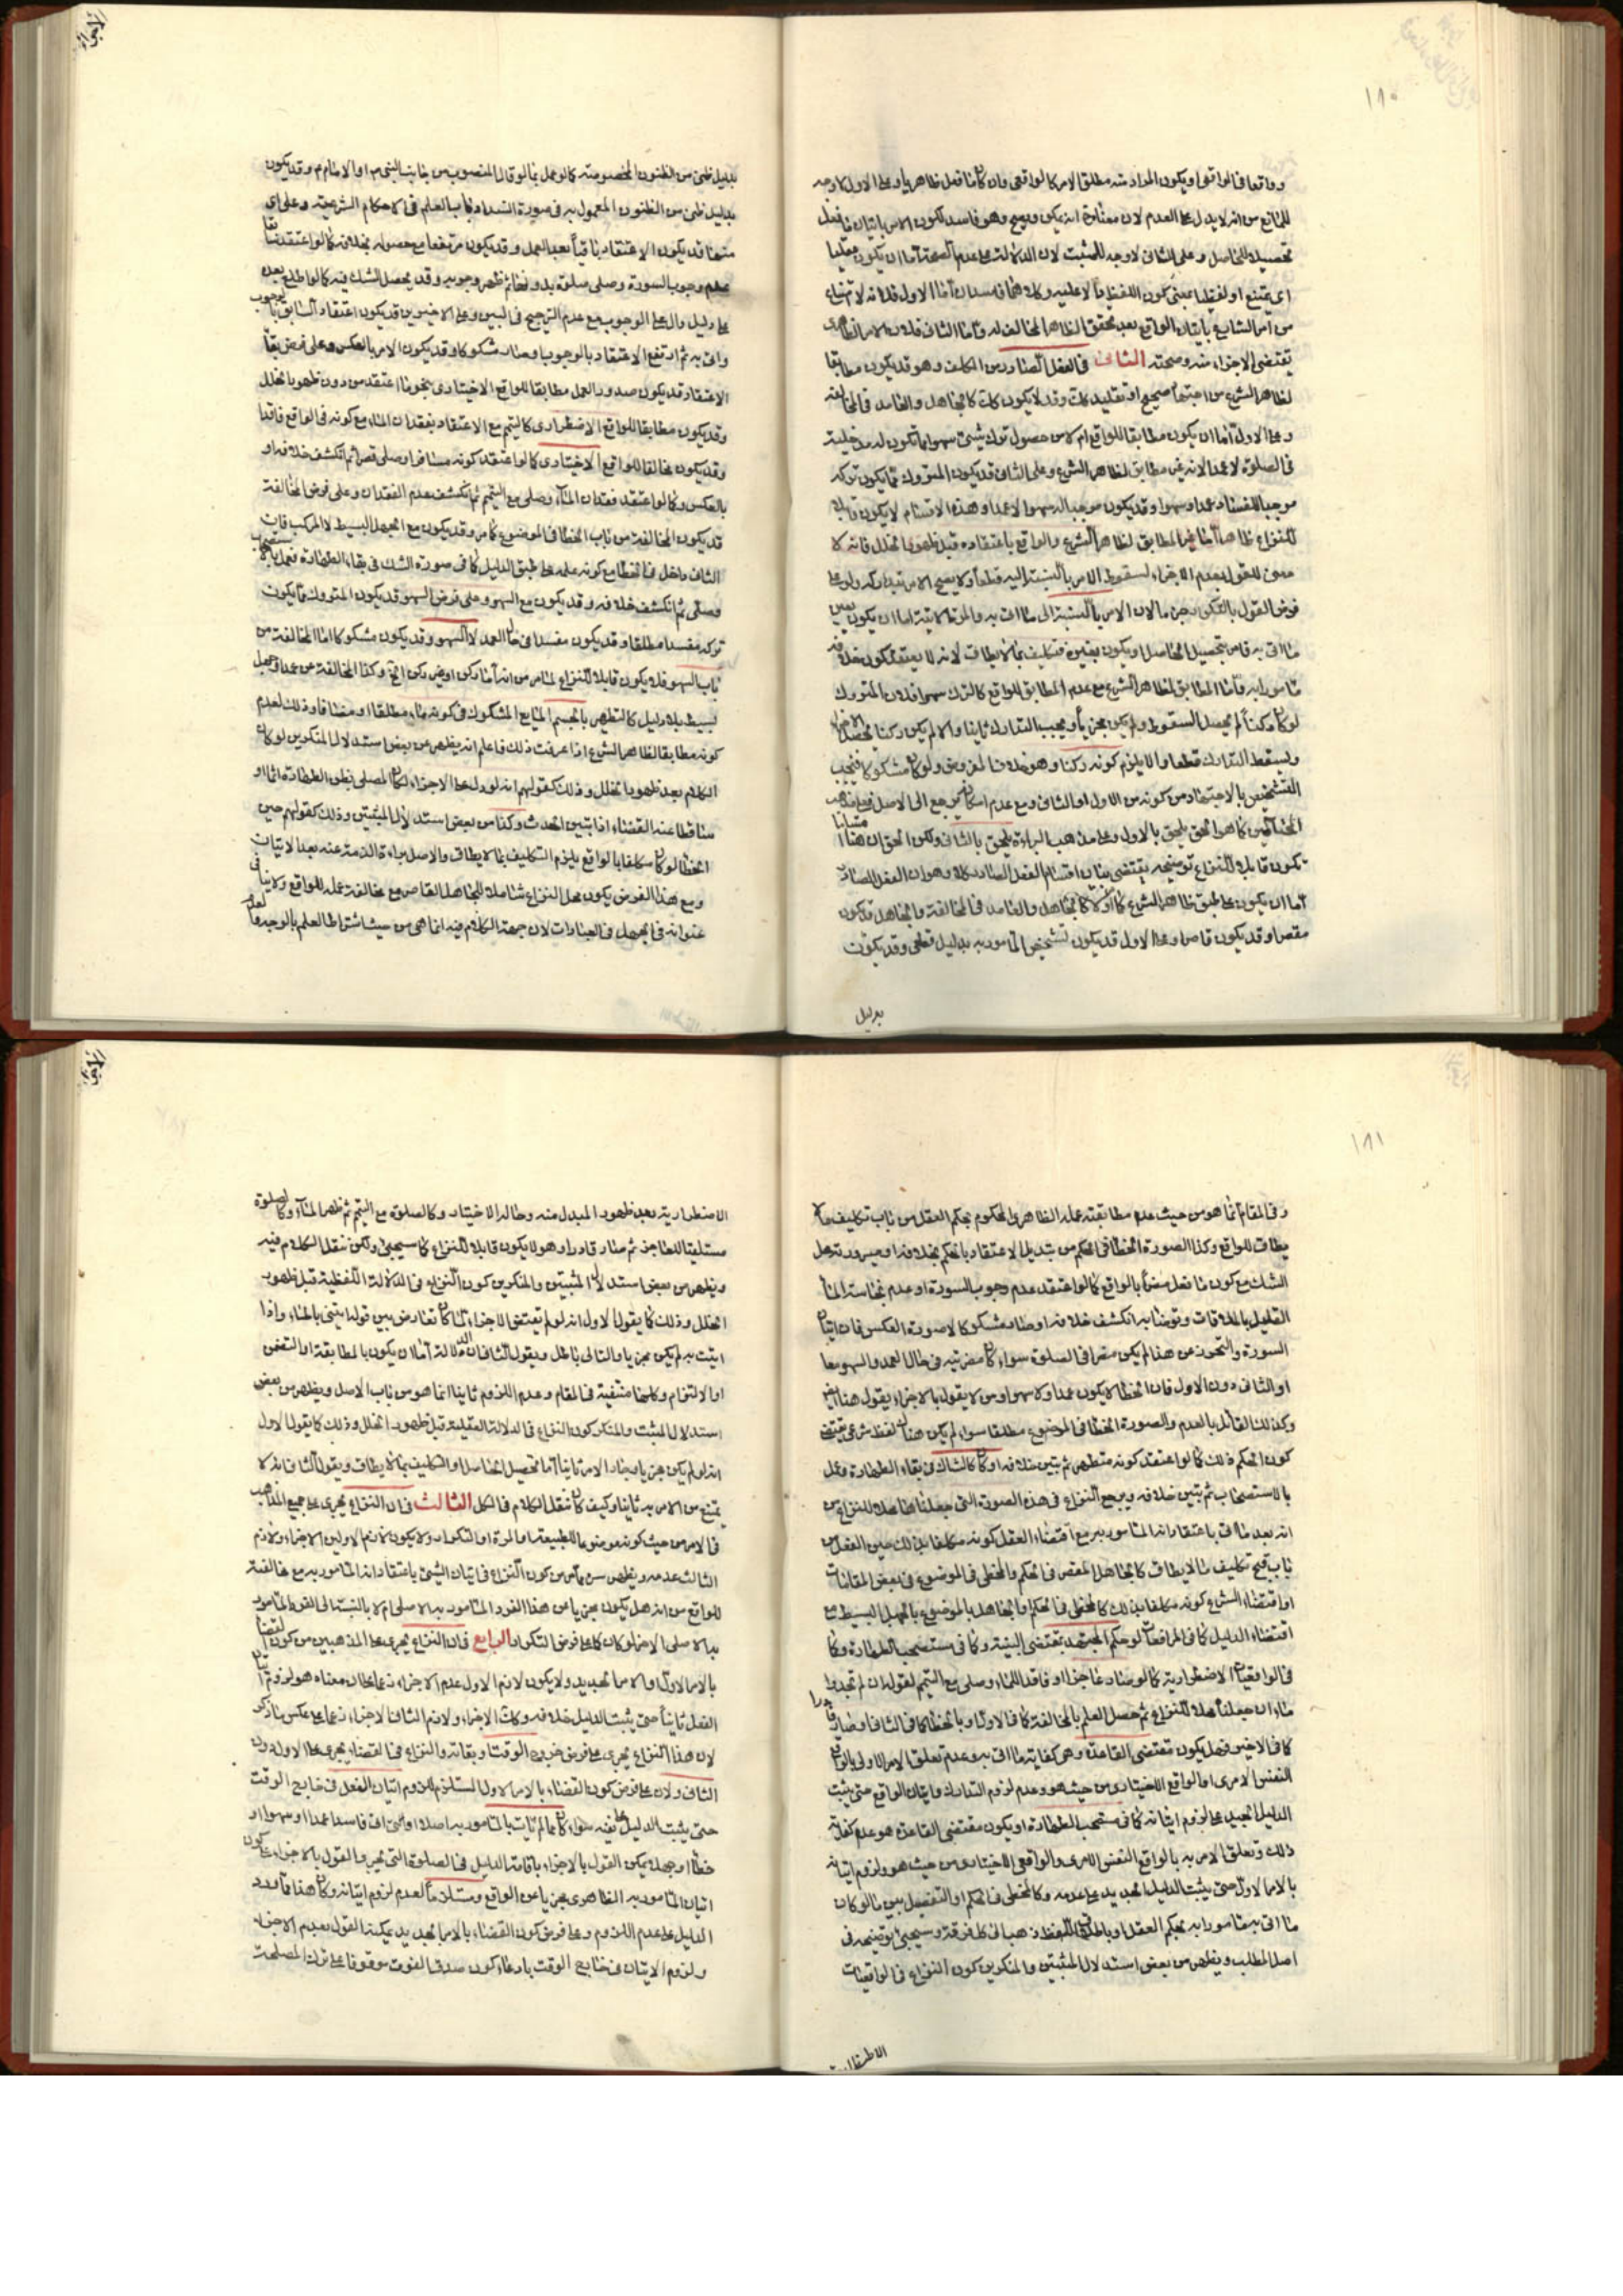 ١٨٠
وواقعا في الواقع او يكون المراد منه مطلق الامر كالواقعي وان كان ما فعل ظاهريا وعلى الاول لا وجه
للمانع من انه لا يدل على العدم لان مفاده انه يكون وهو فاسد لكون الامر باتيان ما فعل
تحصيلا للحاصل وعلى الثاني لا وجه للمثبت لان الدلالة على عدم الصحة اما ان يكون عقليا
اي يمتنع او لفظيا بمعنى كون اللفظ دالا عليه وكلاهما فاسدان اما الاول فلانه لا امتناع
من امر الشارع باتيان الواقع بعد تحقق الظاهر المخالف له واما الثاني فلان الامر الظاهرى
يقتضى الاجزاء منه وصحته الثانى فى الفعل الصادر من المكلف وهو قد يكون مطابقا
لظاهر الشرع من اجتهاد صحيح او تقليد كك وقد لا يكون كك كالجاهل والعامد فى المخالفة
وعلى الاول اما ان يكون مطابقا للواقع ام لا من حصول ترك شىء سهوا مما تكون له مدخلية
فى الصلوة لا عمدا لانه غير مطابق لظاهر الشرع وعلى الثانى قد يكون المتروك مما يكون تركه
موجبا للفساد عمدا وسهوا وقد يكون موجبا له سهوا لا عمدا وهذه الاقسام لا يكون قابلا
للنزاع ظاهرا اما غير المطابق لظاهر الشرع والواقع باعتقاده قبل ظهور الخلل فانه لا
معنى للقول بعدم الاجزاء لسقوط الامر بالنسبة اليه قطعا ولا يصح الامر بتداركه ولو على
فرض القول بالتكرار جزما لان الامر بالنسبة الى ما اتى به والمرة الاتية اما ان يكون بعين
ما اتى به فامر بتحصيل الحاصل او يكون بغيره فتكليف بما لا يطاق لانه لا يعتقد كون خلافه
مامورا به واما المطابق لظاهر الشرع مع عدم المطابق للواقع كالترك سهوا فلان المتروك
لو كان ركنا لم يحصل السقوط ولم يكن مجزيا ويجب التدارك ثانيا والا لم يكن ركنا فيحصل الاجزاء
ويسقط التدارك قطعا والا يلزم كونه ركنا وهو خلاف المفروض ولو كان مشكوكا فيجب
التشخيص بالاجتهاد من كونه من الاول او الثانى ومع عدم امكانه يرجع الى الاصل فعلى مذهب
كما هو الحق يلحق بالاول وعلى مذهب البراءة يلحق بالثانى ولكن الحق ان هنا اقساما
تكون قابلا للنزاع توضيحه يقتضى بيان اقسام الفعل الصادر كلا وهو ان الفعل الصادر
اما ان يكون على طبق ظاهر الشرع كما او لا كالجاهل والعامد فى المخالفة والجاهل قد يكون
مقصرا وقد يكون قاصرا وعلى الاول قد يكون تشخيص المامور به بدليل قطعى وقد يكون
بدليل
بدليل ظنى من الظنون المخصوصة كما لو عمل بما لو قال المنصوب من جانب النبى ص او الامام ع وقد يكون
بدليل ظنى من الظنون المعمول به فى صورة انسداد باب العلم فى الاحكام الشرعية وعلى اى
منها قد يكون الاعتقاد باقيا بعد العمل وقد يكون مرتفعا مع حصوله بخلافه كما لو اعتقد سابقا
عدم وجوب السورة وصلى صلوة بدونها ثم ظهر وجوبه وقد يحصل الشك فيه كما لو اطلع بعده
على دليل دال على الوجوب مع عدم الترجيح فى البين وعلى الاخيرين قد يكون اعتقاد السابق بالوجوب
واتى به ثم ارتفع الاعتقاد بالوجوب او صار مشكوكا وقد يكون الامر بالعكس وعلى فرض بقاء
الاعتقاد قد يكون صدور العمل مطابقا للواقع الاختيارى بنحو ما اعتقد من دون ظهور خلل
وقد يكون مطابقا للواقع الاضطرارى كالتيمم مع الاعتقاد بفقدان الماء مع كونه فى الواقع فاقدا
وقد يكون مخالفا للواقع الاختيارى كما لو اعتقد كونه مسافرا وصلى قصرا ثم انكشف خلافه او
بالعكس وكما لو اعتقد فقدان الماء وصلى مع التيمم ثم انكشف عدم الفقدان وعلى فرض المخالفة
قد يكون المخالفة من باب الخطا فى الموضوع كما مر وقد يكون مع الجهل البسيط لا المركب فان
الثانى داخل فى الخطا مع كونه عمله على طبق الدليل كما فى صورة الشك فى بقاء الطهارة فعمل بالاستصحاب
وصلى ثم انكشف خلافه وقد يكون مع السهو وعلى فرض السهو قد يكون المتروك مما يكون
تركه مفسدا مطلقا وقد يكون مفسدا فى حال العمد لا السهو وقد يكون مشكوكا اما المخالفة من
باب السهو فلا يكون قابلا للنزاع لما مر من انه اما ركن او غير ركن الخ وكذا المخالفة من عمد او جهل
بسيط بلا دليل كالتطهير بالجسم المايع المشكوك فى كونه ماء مطلقا او مضافا وذلك لعدم
كونه مطابقا لظاهر الشرع اذا عرفت ذلك فاعلم انه يظهر من بعض استدلال المنكرين لو كان
الكلام بعد ظهور الخلل وذلك كقولهم انه لو دل على الاجزاء لكان المصلى بظن الطهارة اثما او
ساقطا عنه القضاء اذا تبين الحدث وكذا من بعض استدلال المثبتين وذلك كقولهم حين
الخطا لو كان مكلفا بالواقع يلزم التكليف بما لا يطاق والاصل براءة الذمة عنه بعد الاتيان
ومع هذا الفرض يكون محل النزاع شاملا للجاهل القاصر مع مخالفة عمله للواقع ولا ينافى
عنوانه فى الجهل فى العبادات لان جهة الكلام فيه انما هى من حيث اشتراط العلم بالوجه وعدمه
١٨١
وفى المقام انما هو من حيث عدم مطابقة عمله الظاهرى المحكوم بحكم العقل من باب تكليف ما لا
يطاق للواقع وكذا الصورة الخطا فى الحكم من تبديل الاعتقاد بالحكم بخلافه او صيرورته محل
الشك مع كون ما فعل مضرا بالواقع كما لو اعتقد عدم وجوب السورة او عدم نجاسة الماء
القليل بالملاقات وتوضا به انكشف خلافه او صار مشكوكا لا صورة العكس فان اتيان
السورة والتحرز عن هذا لم يكن مضرا فى الصلوة سواء كان مضريته فى حال العمد والسهو معا
او الثانى دون الاول فان الخطا لا يكون عمدا ولا سهوا ومن لا يقول بالاجزاء يقول هنا ايضا
وكذلك القائل بالعدم والصورة الخطا فى الموضوع مطلقا سواء لم يكن هناك لفظ شرعى يقتضى
كون الحكم ذلك كما لو اعتقد كونه متطهر ثم تبين خلافه او كان كالشاك فى بقاء الطهارة وعمل
بالاستصحاب ثم تبين خلافه ويرجع النزاع فى هذه الصورة التى جعلناها محلا للنزاع من
انه بعد ما اتى باعتقاد انه المامور به مع اقتضاء العقل كونه مكلفا بذلك حين الفعل من
باب قبح تكليف ما لا يطاق كالجاهل المقصر فى الحكم والمخطى فى الموضوع فى بعض المقامات
او اقتضاء الشرع كونه مكلفا بذلك كالمخطى فى الحكم والجاهل بالموضوع بالجهل البسيط مع
اقتضاء الدليل كما فى المرافعات لو حكم المجتهد بمقتضى البينة وكما فى مستصحب الطهارة وكما
فى الواقعيات الاضطرارية كما لو صار عاجزا او فاقدا للماء وصلى مع التيمم لقوله ان لم تجدوا
ماء ان جعلنا محلا للنزاع ثم حصل العلم بالمخالفة كما فى الاول او بالخطا كما فى الثانى او صار قادرا
كما فى الاخير فهل يكون مقتضى القاعدة وهى كفاية ما اتى به وعدم تعلق الامر الاولى بالواقع
النفس الامرى او الواقع الاختيارى من حيث هو وعدم لزوم التدارك واتيان الواقع حتى يثبت
الدليل الجديد على لزوم اتيانه كما فى مستصحب الطهارة او يكون مقتضى القاعدة هو عدم كفاية
ذلك وتعلق الامر به بالواقع النفس الامرى والواقعى الاختيارى من حيث هو ولزوم اتيانه
بالامر الاول حتى يثبت الدليل الجديد على عدمه وكالمخطى فى الحكم او التفصيل بين ما لو كان
ما اتى به مامورا به بحكم العقل او باطلاق اللفظ ذهب الى كل فرقة وسيجىء توضيحه فى
اصل المطلب ويظهر من بعض استدلال المثبتين والمنكرين كون النزاع فى الواقعيات
الاضطرارية
الاضطرارية بعد ظهور المبدل منه وحالة الاختيار وكالصلوة مع التيمم ثم ظهر الماء وكالصلوة
مستلقيا للعاجز ثم صار قادرا وهو لا يكون قابلا للنزاع كما سيجىء ولكن ننقل الكلام فيه
ويظهر من بعض استدلال المثبتين والمنكرين كون النزاع فى الدلالة اللفظية قبل ظهور
الخلل وذلك كما يقول الاول انه لو لم يقتض الاجزاء لما كان تعارض بين قوله ايتنى بالماء واذا
اتيت به لم يكن مجزيا والتالى باطل ويقول الثانى ان الدلالة اما ان يكون بالمطابقة او التضمن
او الالتزام وكلها منتفية فى المقام وعدم اللزوم ثانيا انما هو من باب الاصل ويظهر من بعض
استدلال المثبت والمنكر كون النزاع فى الدلالة العقلية قبل ظهور الخلل وذلك كما يقول الاول
انه لو لم يكن مجزيا وجاز الامر ثانيا اما تحصيل الحاصل او التكليف بما لا يطاق ويقول الثانى انه لا
يمتنع من الامر به ثانيا وكيف كان ننقل الكلام فى الكل الثالث فى ان النزاع يجرى على جميع المذاهب
فى الامر من حيث كونه موضوعا للطبيعة او المرة او التكرار ولا يكون لازم الاولين الاجزاء ولازم
الثالث عدمه ويظهر سره مما مر من كون النزاع فى اتيان الشىء باعتقاد انه المامور به مع مخالفته
للواقع من انه هل يكون مجزيا من هذا الفرد المامور به الاصلى ام لا بالنسبة الى الفرد المامور
به الاصلى الاخر لو كان كما على فرض التكرار الرابع فى ان النزاع يجرى على المذهبين من كون القضاء
بالامر الاول او الامر الجديد ولا يكون لازم الاول عدم الاجزاء زعما بان معناه هو لزوم اتيان
الفعل ثانيا حتى يثبت الدليل خلافه وكان الاجزاء ولازم الثانى الاجزاء زعما على عكس ما ذكر
لان هذا النزاع يجرى على فرض خروج الوقت او بقائه والنزاع فى القضاء يجرى على الاول دون
الثانى ولان على فرض كون القضاء بالامر الاول المستلزم للزوم اتيان الفعل فى خارج الوقت
حتى يثبت الدليل على نفيه سواء كان مما لم يات بالمامور به اصلا او اتى فاسدا عمدا او سهوا او
خطا او جهلا يمكن القول بالاجزاء باقامة الدليل فى الصلوة التى نحن والقول بالاجزاء على كون
اتيان المامور به الظاهرى مجزيا عن الواقع ومستلزما لعدم لزوم اتيانه وكان هذا مما ورد
الدليل على عدم اللزوم وعلى فرض كون القضاء بالامر الجديد يمكن القول بعدم الاجزاء
ولزوم الاتيان فى خارج الوقت بادعاء كون صدق الفوت موقوفا على ترك المصلحة